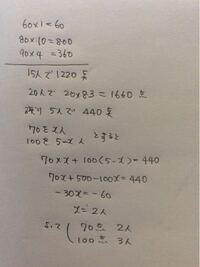 60×1=60
80×10=800
90×4=360
15人で1220点
20人で 20×83=1660点
残り5人で 440点
70をx人
100を5-x人 とすると
70×x+100(5-x)=440
70x+500-100x=440
-30x=-60
x=2人
よって 70点 2人
100点 3人